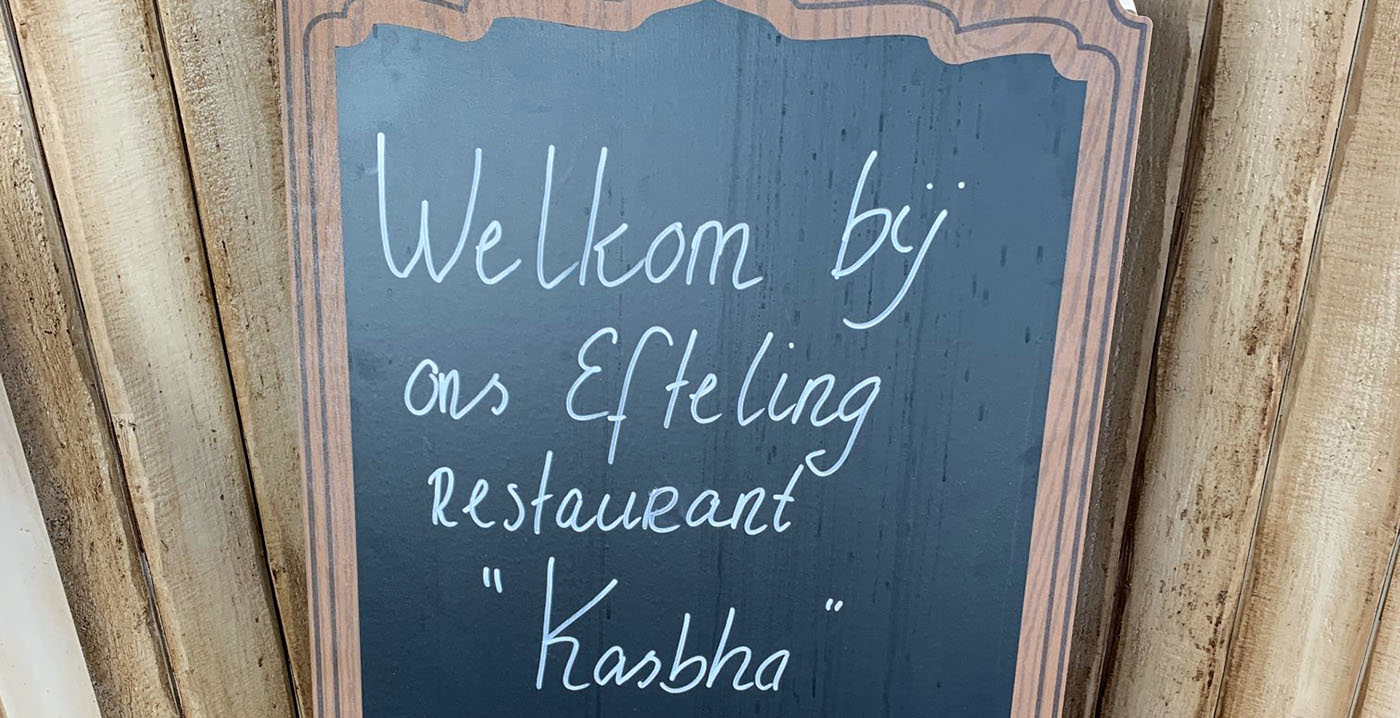 Welkom bij
ons Efteling
Restaurant
"Kasbha"